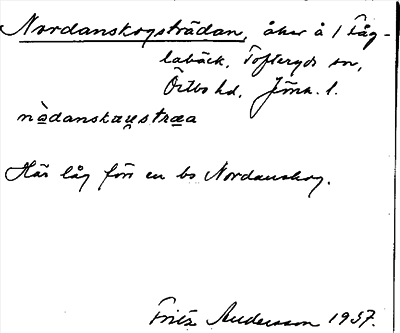 Nordanskogsträdan, åker å 1 Fåg-
labäck, Tofteryds sn,
Östbo hd, Jönk. l.
nòdanskau̯stræa
Här låg förr en bs Nordanskog.
Fritz Andersson 1937.